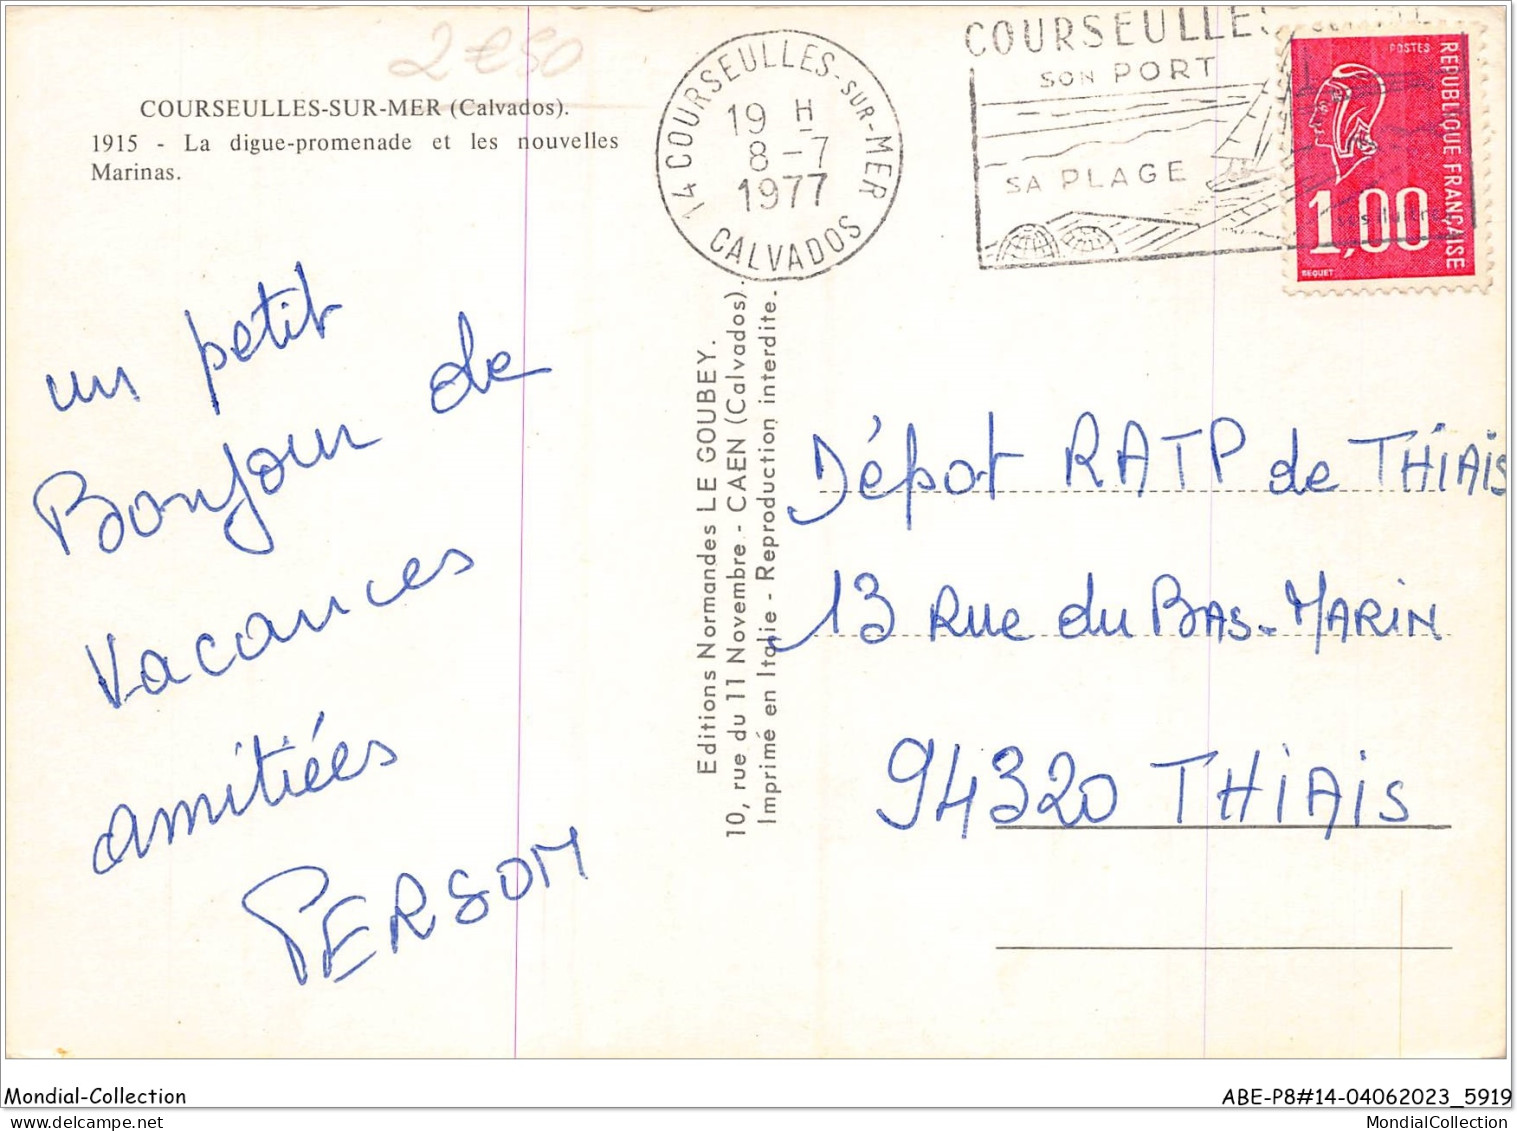 2€50
COURSEULLES-SUR-MER (Calvados).
1915 - La digue-promenade et les nouvelles
Marinas.
un petit
Bonjour de
Vacances
amitiées
PERSON
Editions Normandes LE GOUBEY.
10, rue du 11 Novembre - CAEN (Calvados).
Imprimé en Italie - Reproduction interdite.
14 COURSEULLES-SUR-MER
19 H
8 - 7
1977
CALVADOS
COURSEULLES
SON PORT
SA PLAGE
POSTES
REPUBLIQUE FRANÇAISE
1,00
BEQUET
Dépot RATP de THIAIS
13 Rue du BAS-MARIN
94320 THIAIS
Mondial-Collection
ABE-P8#14-04062023_5919
MondialCollection
MondialCollection